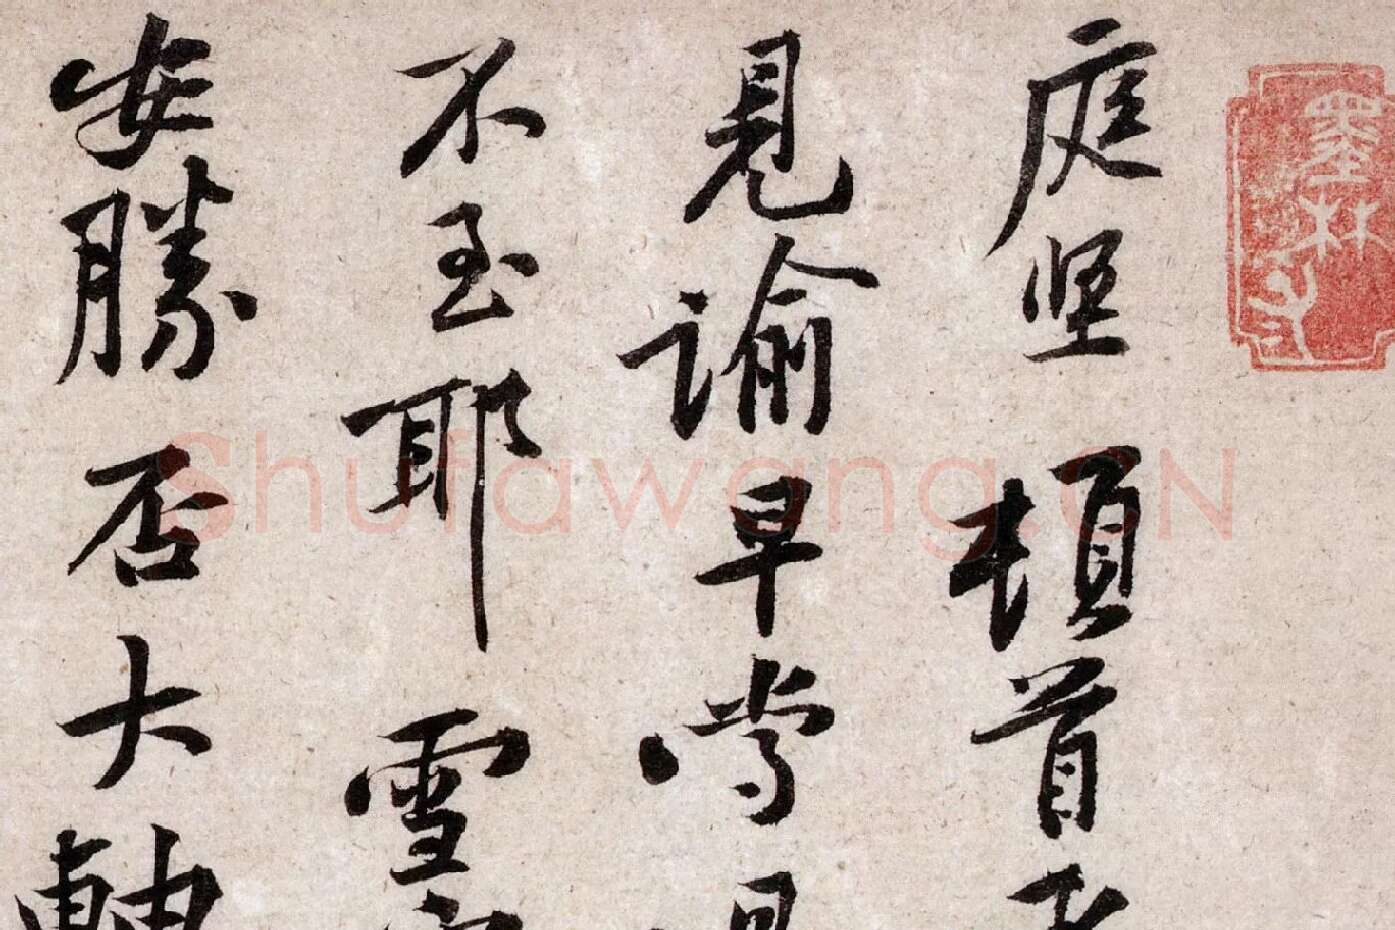 庭坚頓首
見諭早嘗
不至耶雪
安勝否大軸
墨林
Shufawang.CN